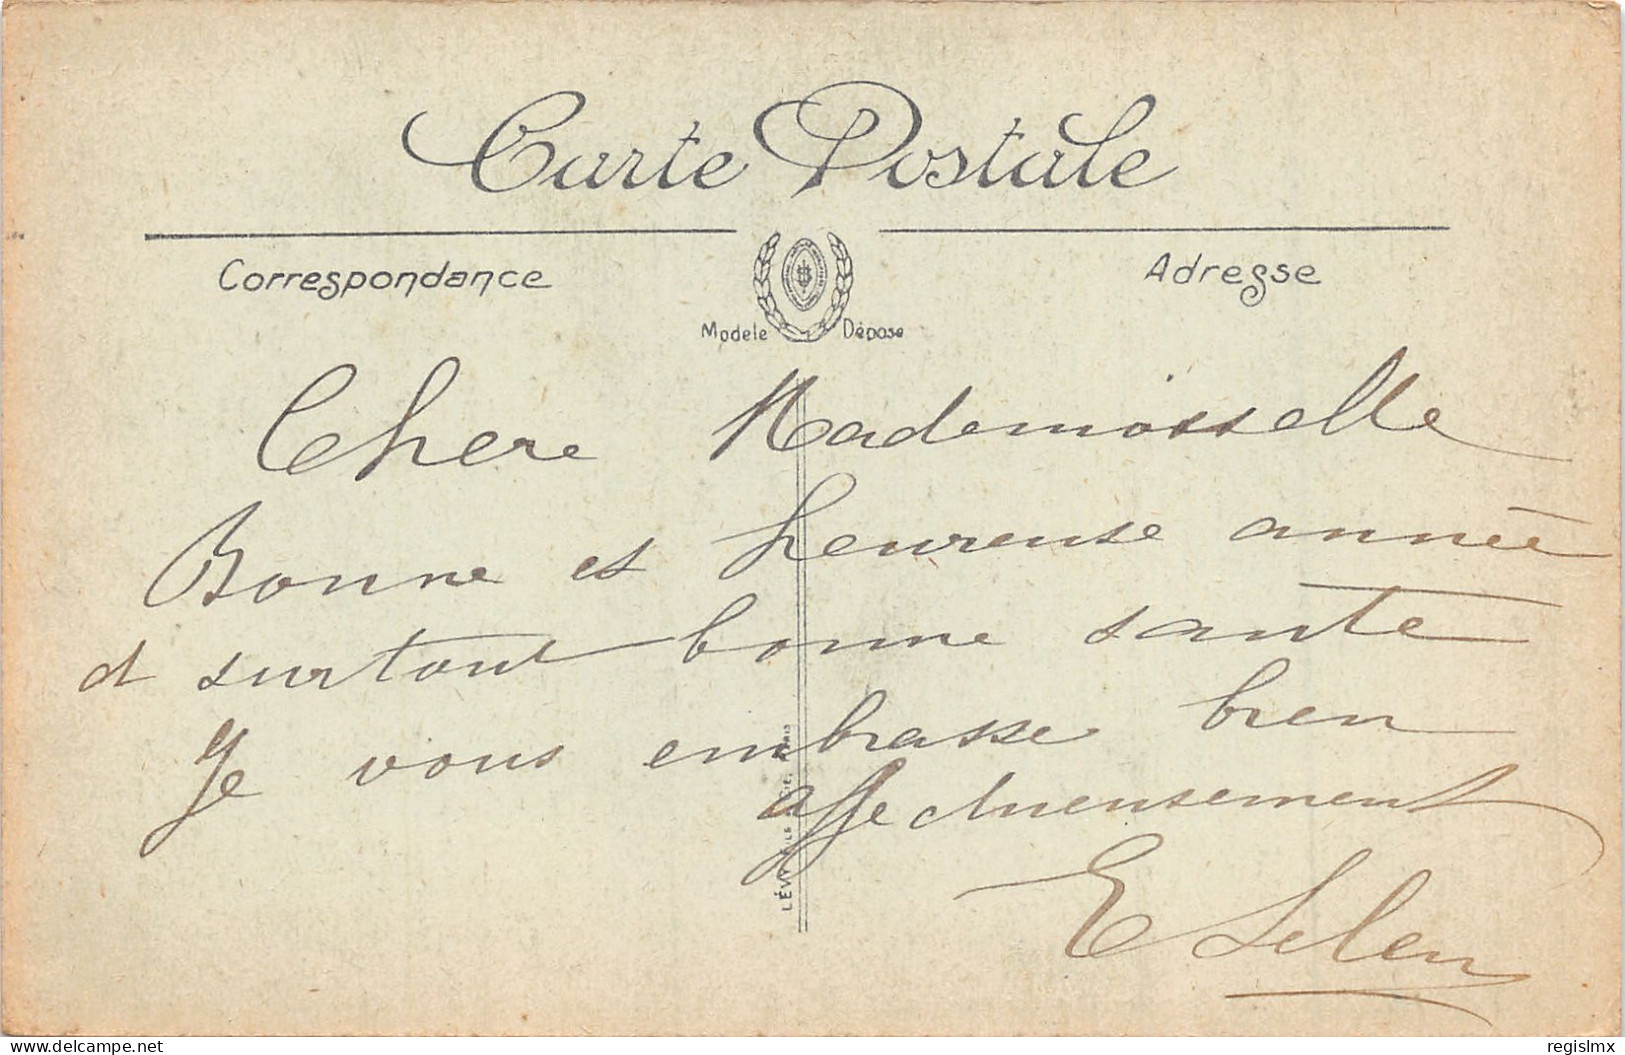 Carte Postale
Correspondance
Adresse
Modele Déposé
Chere Mademoisselle
Bonne et heureuse année
et surtout bonne santé
Je vous embrasse bien
affectueusement
E
LÉVY
delcampe.net
regislmx